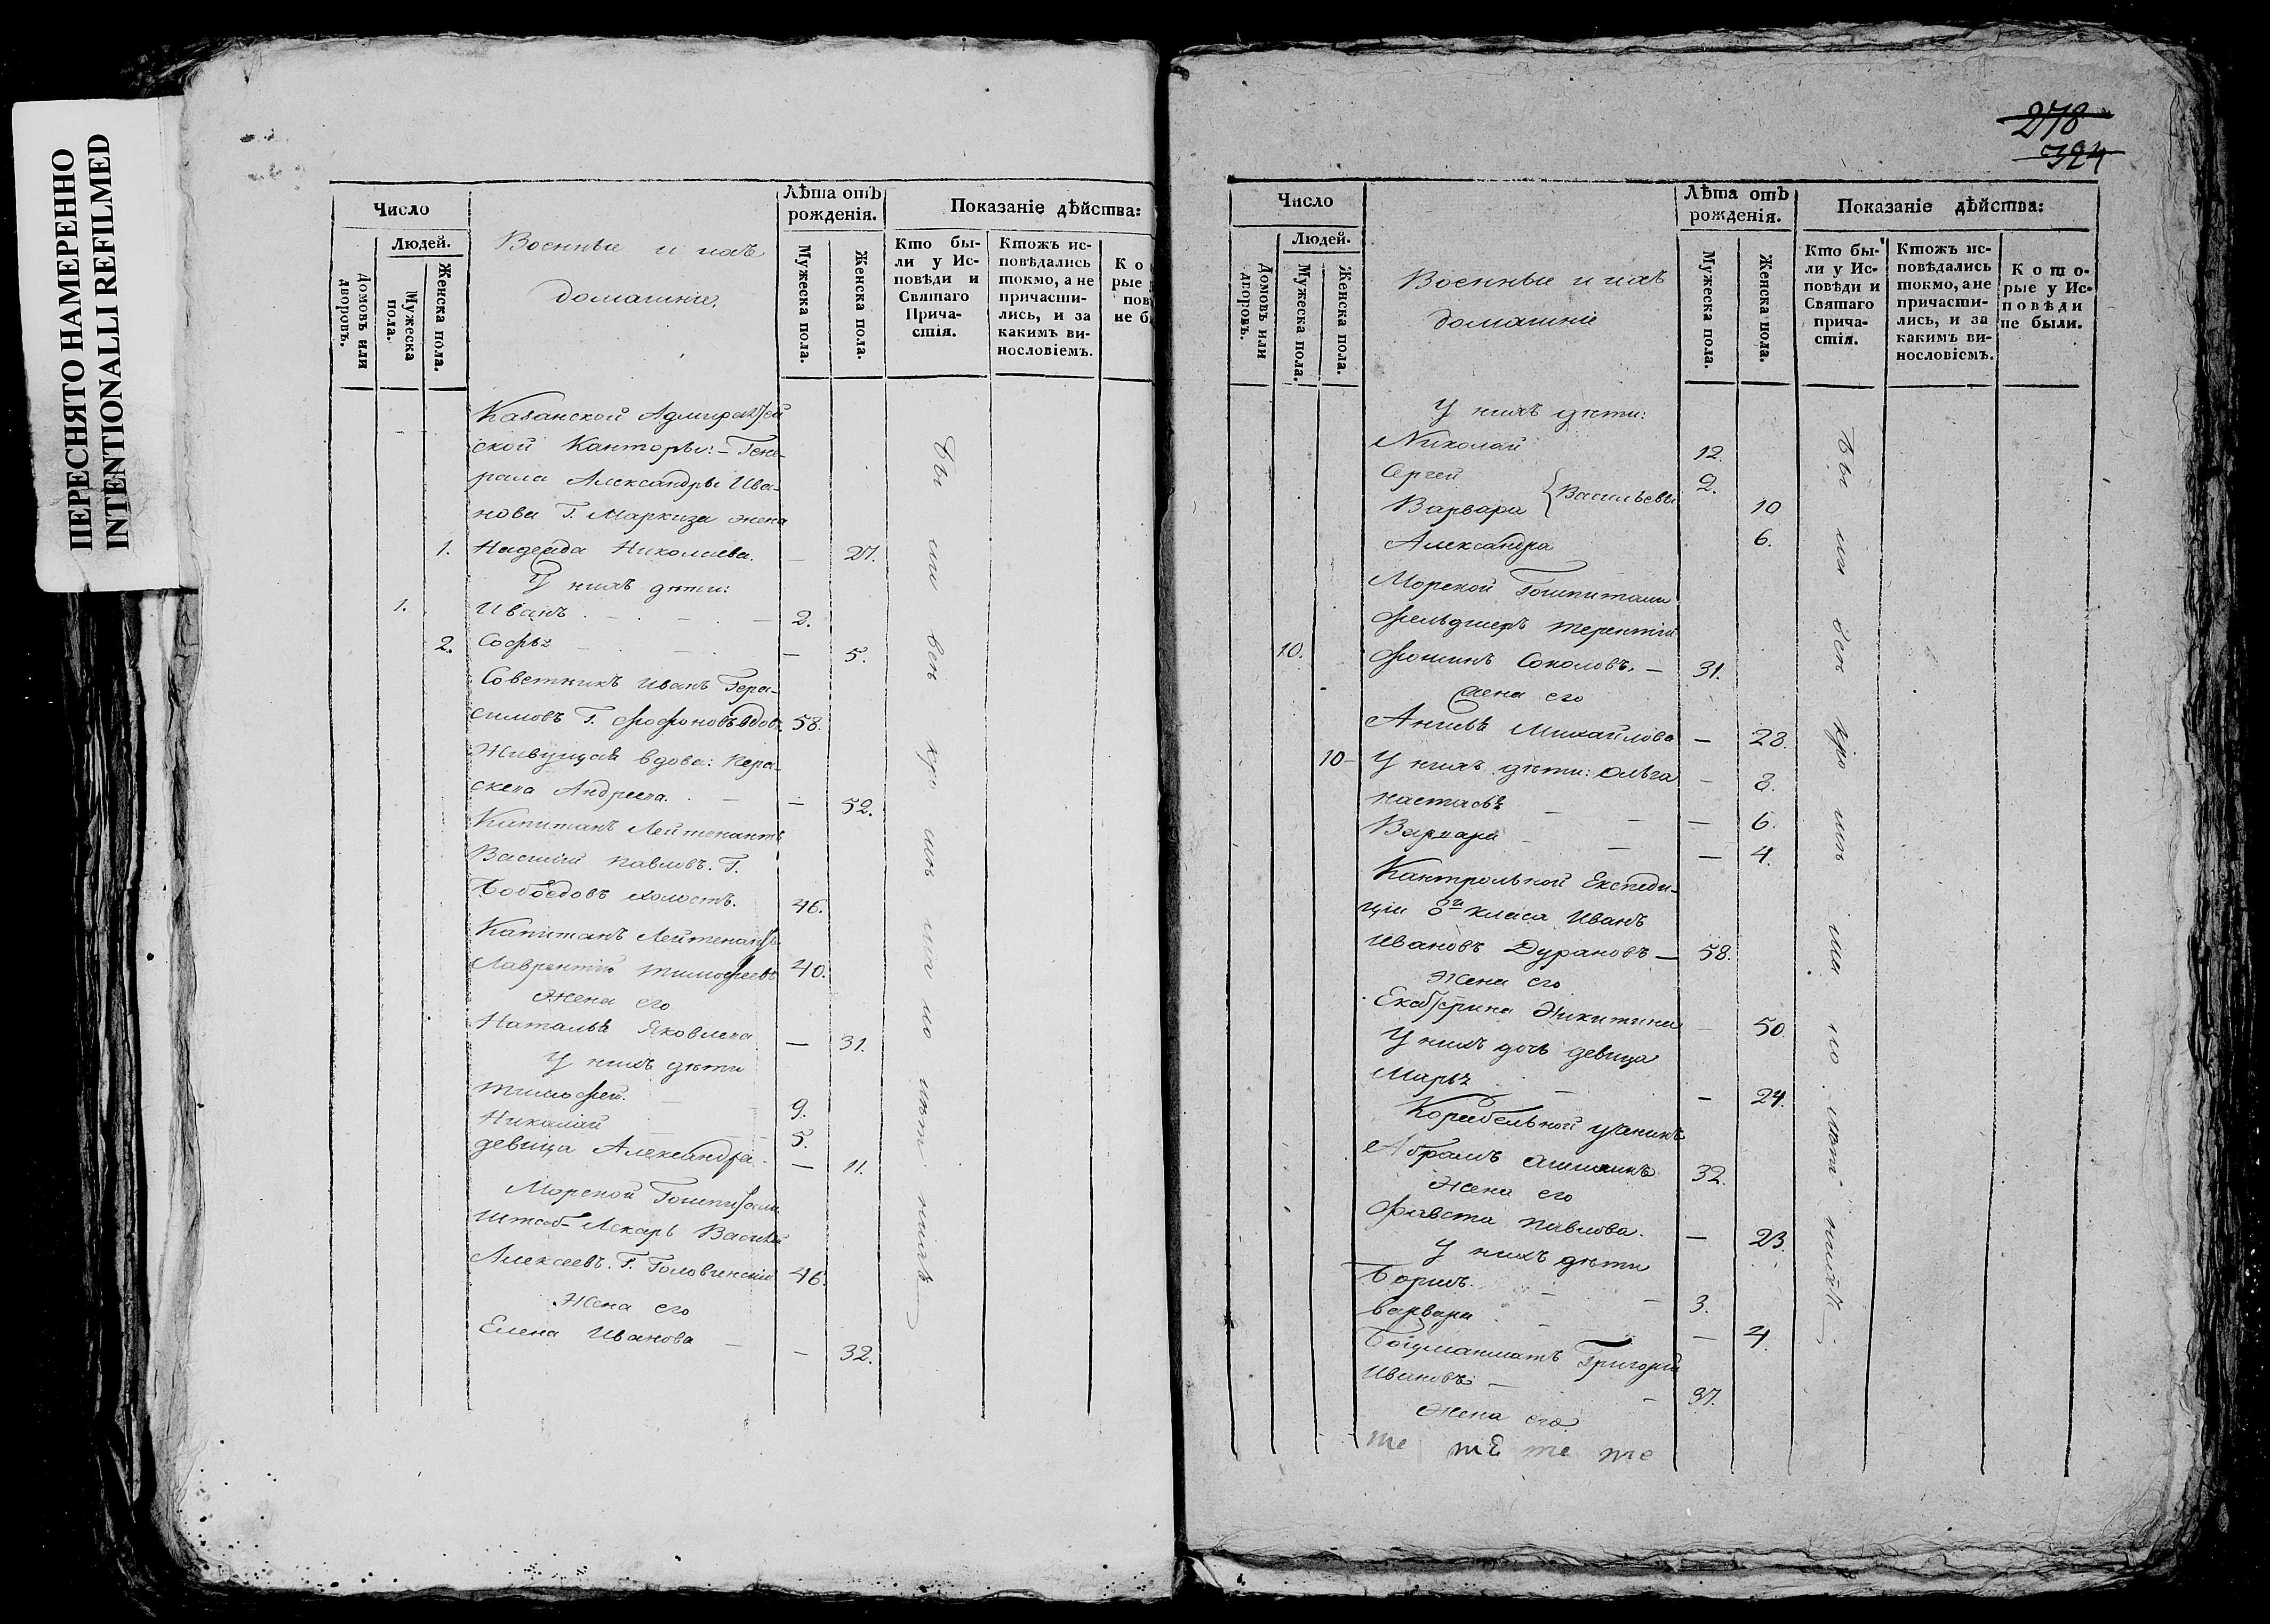 ПЕРЕСНЯТО НАМЕРЕННО
INTENTIONALLI REFILMED
Число
Людей.
Домовъ или дворовъ.
Мужеска пола.
Женска пола.
Военные и ихъ
домашніе
Лѣта отъ рожденія.
Мужеска пола.
Женска пола.
Показаніе дѣйства:
Кто бы-
ли у Ис-
повѣди и
Святаго
Прича-
стія.
Ктожъ ис-
повѣдались
токмо, а не
причасти-
лись, и за
какимъ ви-
нословіемъ.
Ко
рые
пов
не б
Казанской Адмиралтей
ской Канторы: – Гене-
рала Александры Ива-
нова Г. Маркиза жена
1. Надежда Николаева. — 27.
У нихъ дѣти:
1. Иванъ — 2.
2. Софья — 5.
Советникъ Иванъ Гера-
симовъ Г. Фофоновъ вдов. 58.
Живущая вдова: Пера-
скева Андреева. — 52.
Капитанъ Лейтенантъ
Василій Павловъ. Г.
Бобоедовъ холостъ. 46.
Капитанъ Лейтенантъ
Лаврентій Тимофеевъ 40.
Жена его
Наталья Яковлева — 31.
У нихъ дѣти
Тимофей. 9.
Николай 5.
девица Александра. — 11.
Морской Гошпитали
Штаб-Лекарь Василей
Алексеевъ. Г. Головинскій 46.
Жена его
Елена Иванова — 32.
278
324
Число
Людей.
Домовъ или дворовъ.
Мужеска пола.
Женска пола.
Военные и ихъ
домашніе
Лѣта отъ рожденія.
Мужеска пола.
Женска пола.
Показаніе дѣйства:
Кто бы-
ли у Ис-
повѣди и
Святаго
прича-
стія.
Ктожъ ис-
повѣдались
токмо, а не
причасти-
лись, и за
какимъ ви-
нословіемъ.
Кото-
рые у Ис-
повѣди
не были.
У нихъ дѣти:
Николай 12.
Сергей 2.
Варвара Васильевы 10
Александра 6.
Морской Гошпитали
Фельдшеръ Терентій
10. Фоминъ Соколовъ. — 31.
Жена его
Анисья Михайлова — 28.
10 – У нихъ дѣти: Ольга — 8.
Настасья — 6.
Варвара — 4.
Кантрольной Експеди-
ціи 8й класа Иванъ
Ивановъ Дурановъ — 58.
Жена его
Екатерина Никитина 50.
У нихъ дочь девица
Марья — 24.
Корабельной ученикъ
Абрамъ 32.
Жена его
Фавста Павлова. — 23.
У нихъ дѣти
Борисъ. — 3.
Варвара — 4.
Боцманматъ Григорій
Ивановъ — 37.
Жена его
те тЕ те те